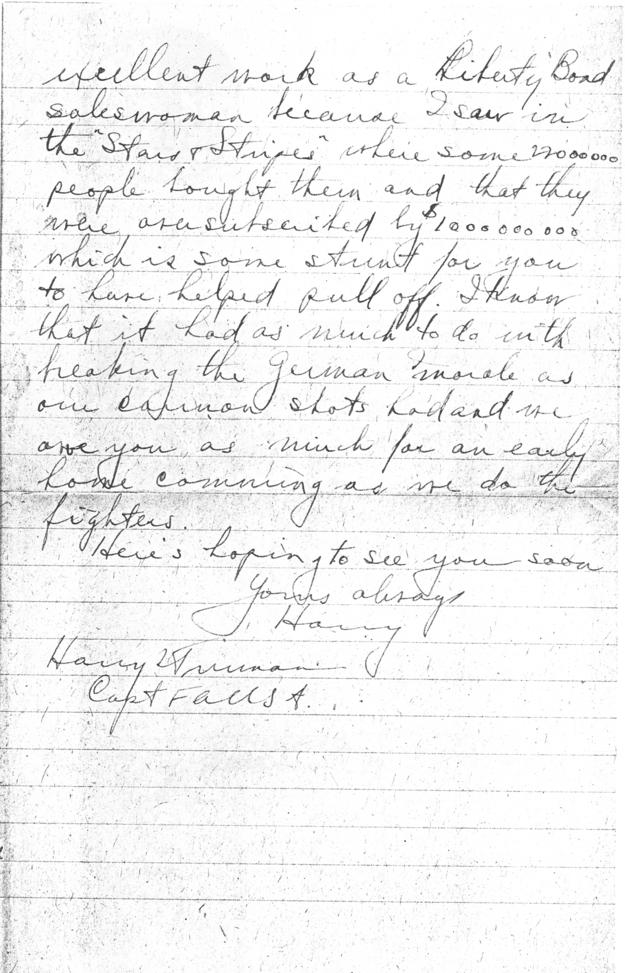 excellent work as a Liberty Bond
saleswoman because I saw in
the "Stars & Stripes" where some 22000000
people bought them and that they
were oversubscribed by $1000000000
which is some stunt for you
to have helped pull off. I know
that it had as much to do with
breaking the German morale as
our cannon shots had and we
owe you as much for an early
home comming as we do the
fighters.
Here's hoping to see you soon
Yours always
Harry
Harry S Truman
Capt FA USA.